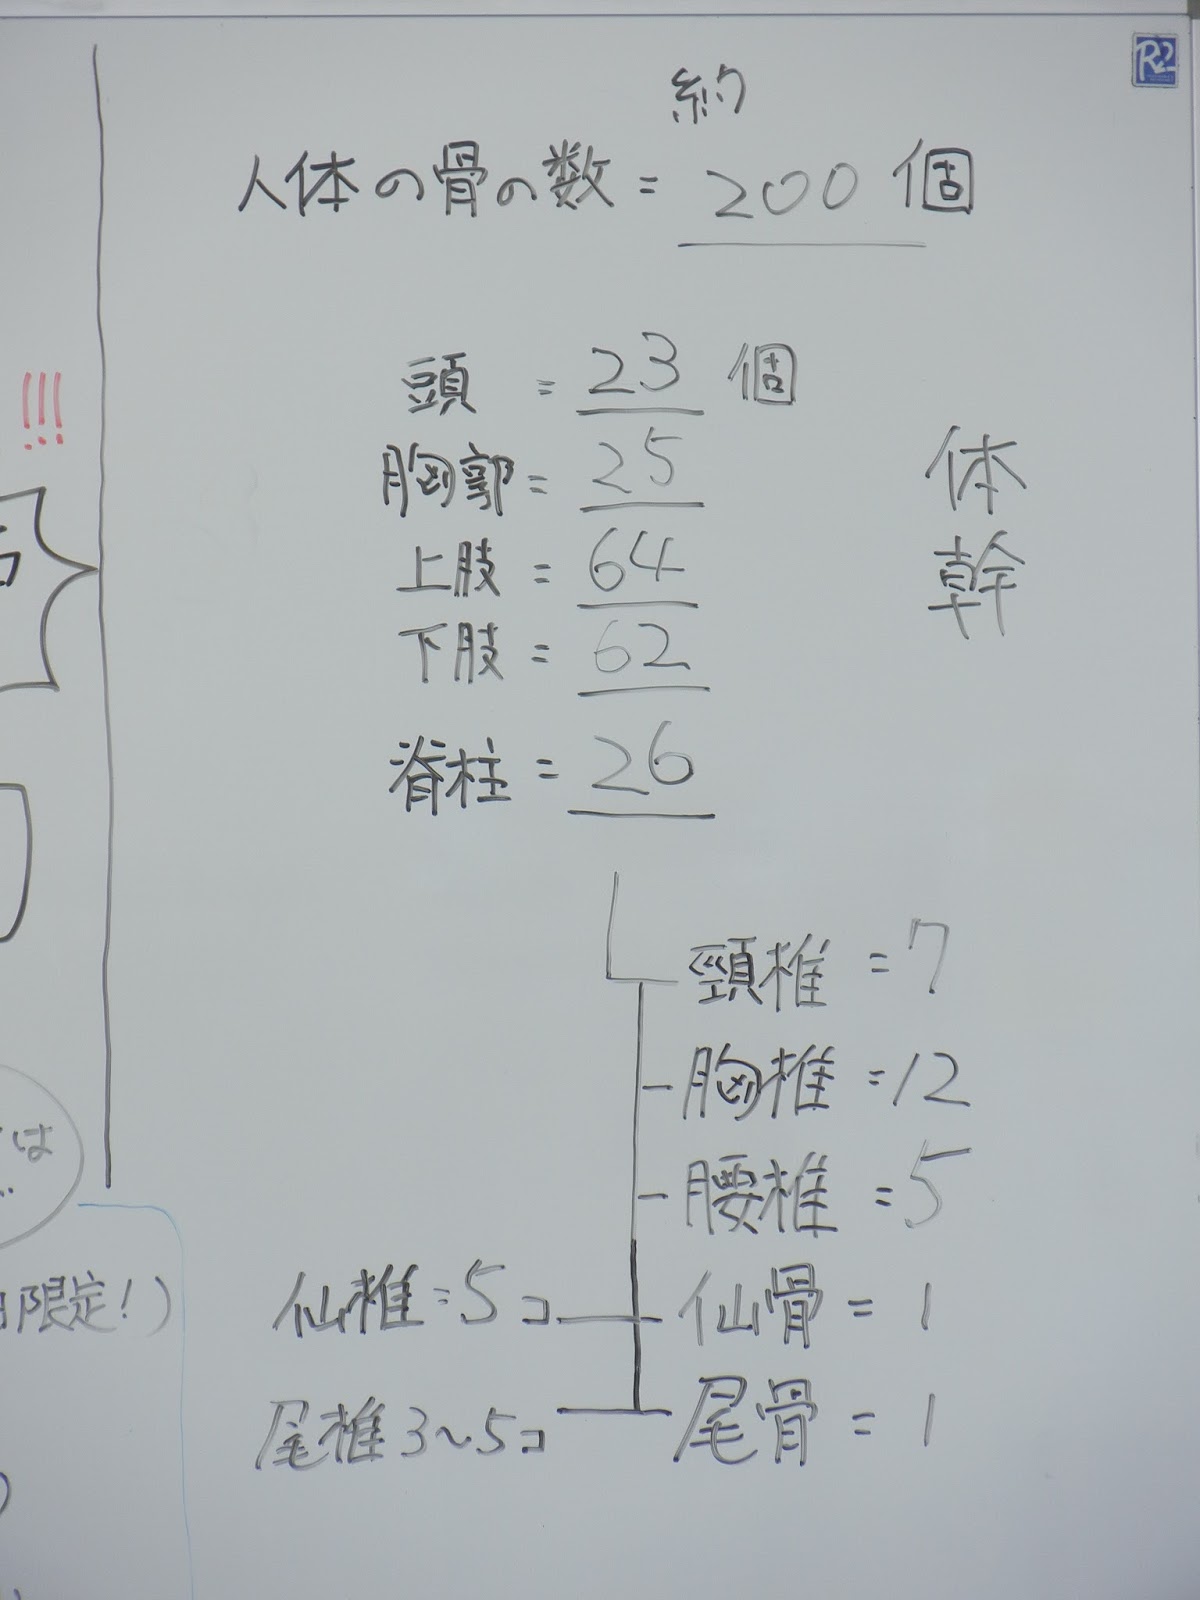 約
人体の骨の数 = 200 個
頭 = 23 個
胸郭 = 25
上肢 = 64
下肢 = 62
脊柱 = 26
体
幹
頸椎 = 7
胸椎 = 12
腰椎 = 5
仙椎 = 5コ
仙骨 = 1
尾椎 3~5コ
尾骨 = 1
!!!
は
限定!)